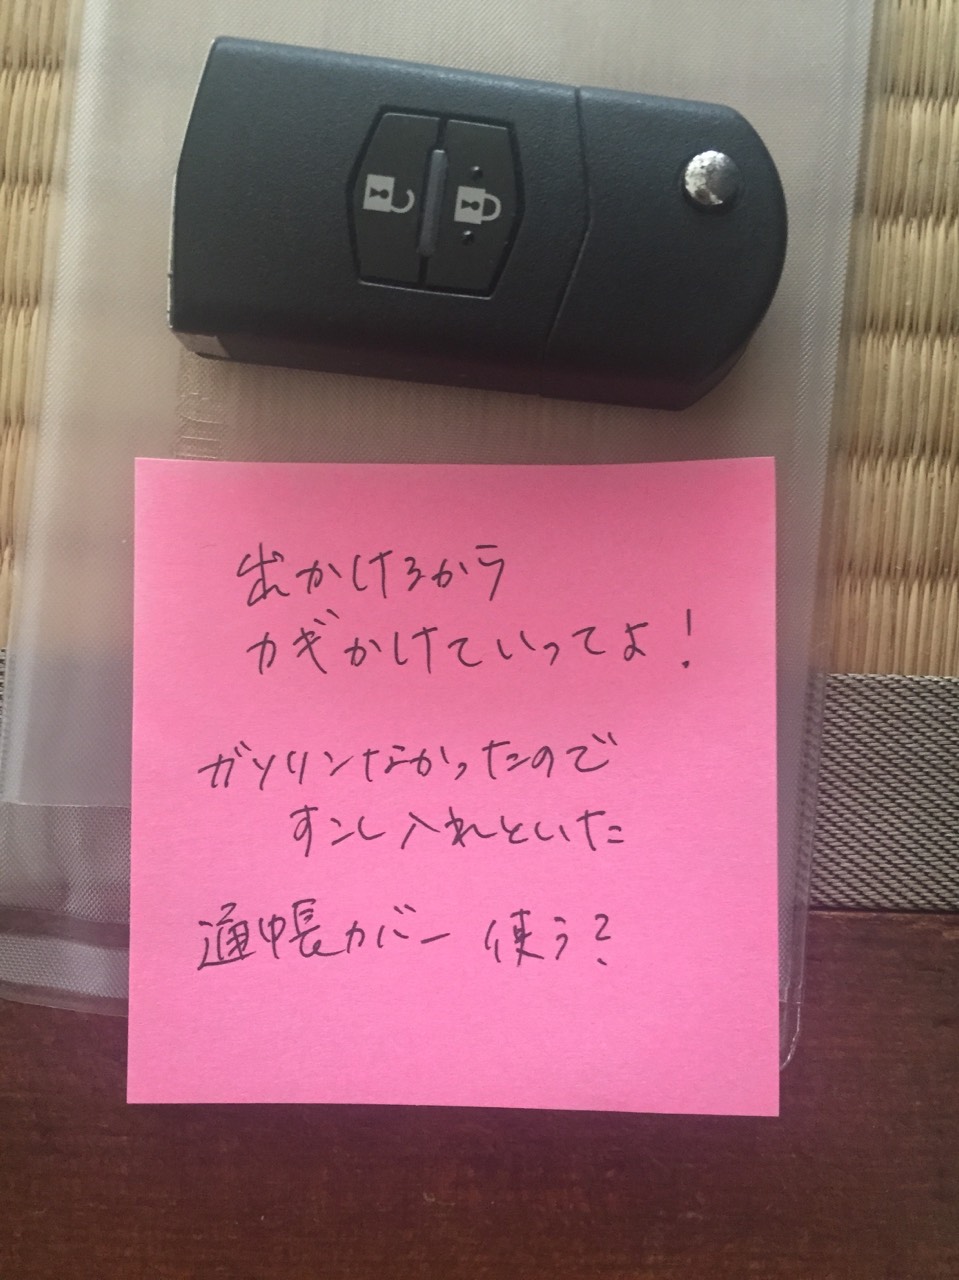 出かけるから
カギかけていってよ!
ガソリンなかったので
すこし入れといた
通帳カバー 使う?